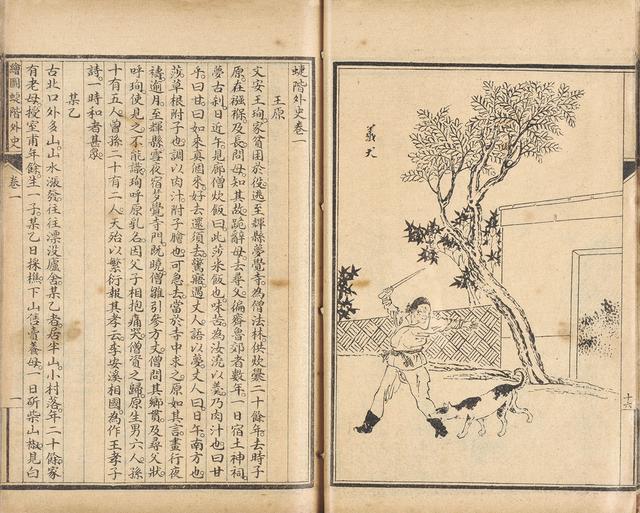 義犬
十六
蜨階外史卷一
王原
文安王珣家貧困於役逃至輝縣夢覺寺為僧法林供炊爨二十餘年去時子
原在襁褓及長問母知其故跪辭母去尋父偏齊魯郊者數年一日宿土神祠
夢古刹日近午見廊僧炊飯曰此莎米飯也味苦為汝澆以羹乃肉汁也曰甘
乎曰甘曰如來真個來好去還須去驚寤遇丈人語以夢丈人曰日午南方也
莎草根附子也調以肉汁附子膾也可急去當於寺中求之原如其言晝行夜
禱逾月至輝縣雪夜宿夢覺寺門既曉僧雛引參方丈僧問其鄉貫及尋父狀
呼珣使見之不能識珣呼原乳名因父子相抱痛哭僧資之歸原生男六人孫
十有五人曾孫二十有二人天殆以繁衍報其孝云李安溪相國為作王孝子
詩一時和者甚眾
某乙
古北口外多山山水漲發往往漂沒廬舍某乙者居半山小村落年二十餘家
有老母授室甫年餘生一子某乙日採樵下山售賣養母一日斫柴山椒見白
繪圖蜨階外史 卷一 一